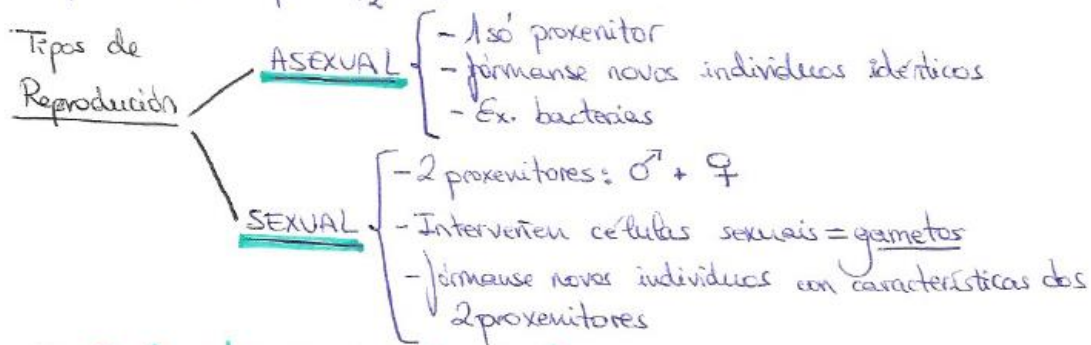 Tipos de
Reprodución
ASEXUAL
- 1 só proxenitor
- fórmanse novos individuos idénticos
- Ex. bacterias
SEXUAL
- 2 proxenitores: ♂ + ♀
- Interveñen células sexuais = gametos
- fórmanse novos individuos con características dos
2 proxenitores